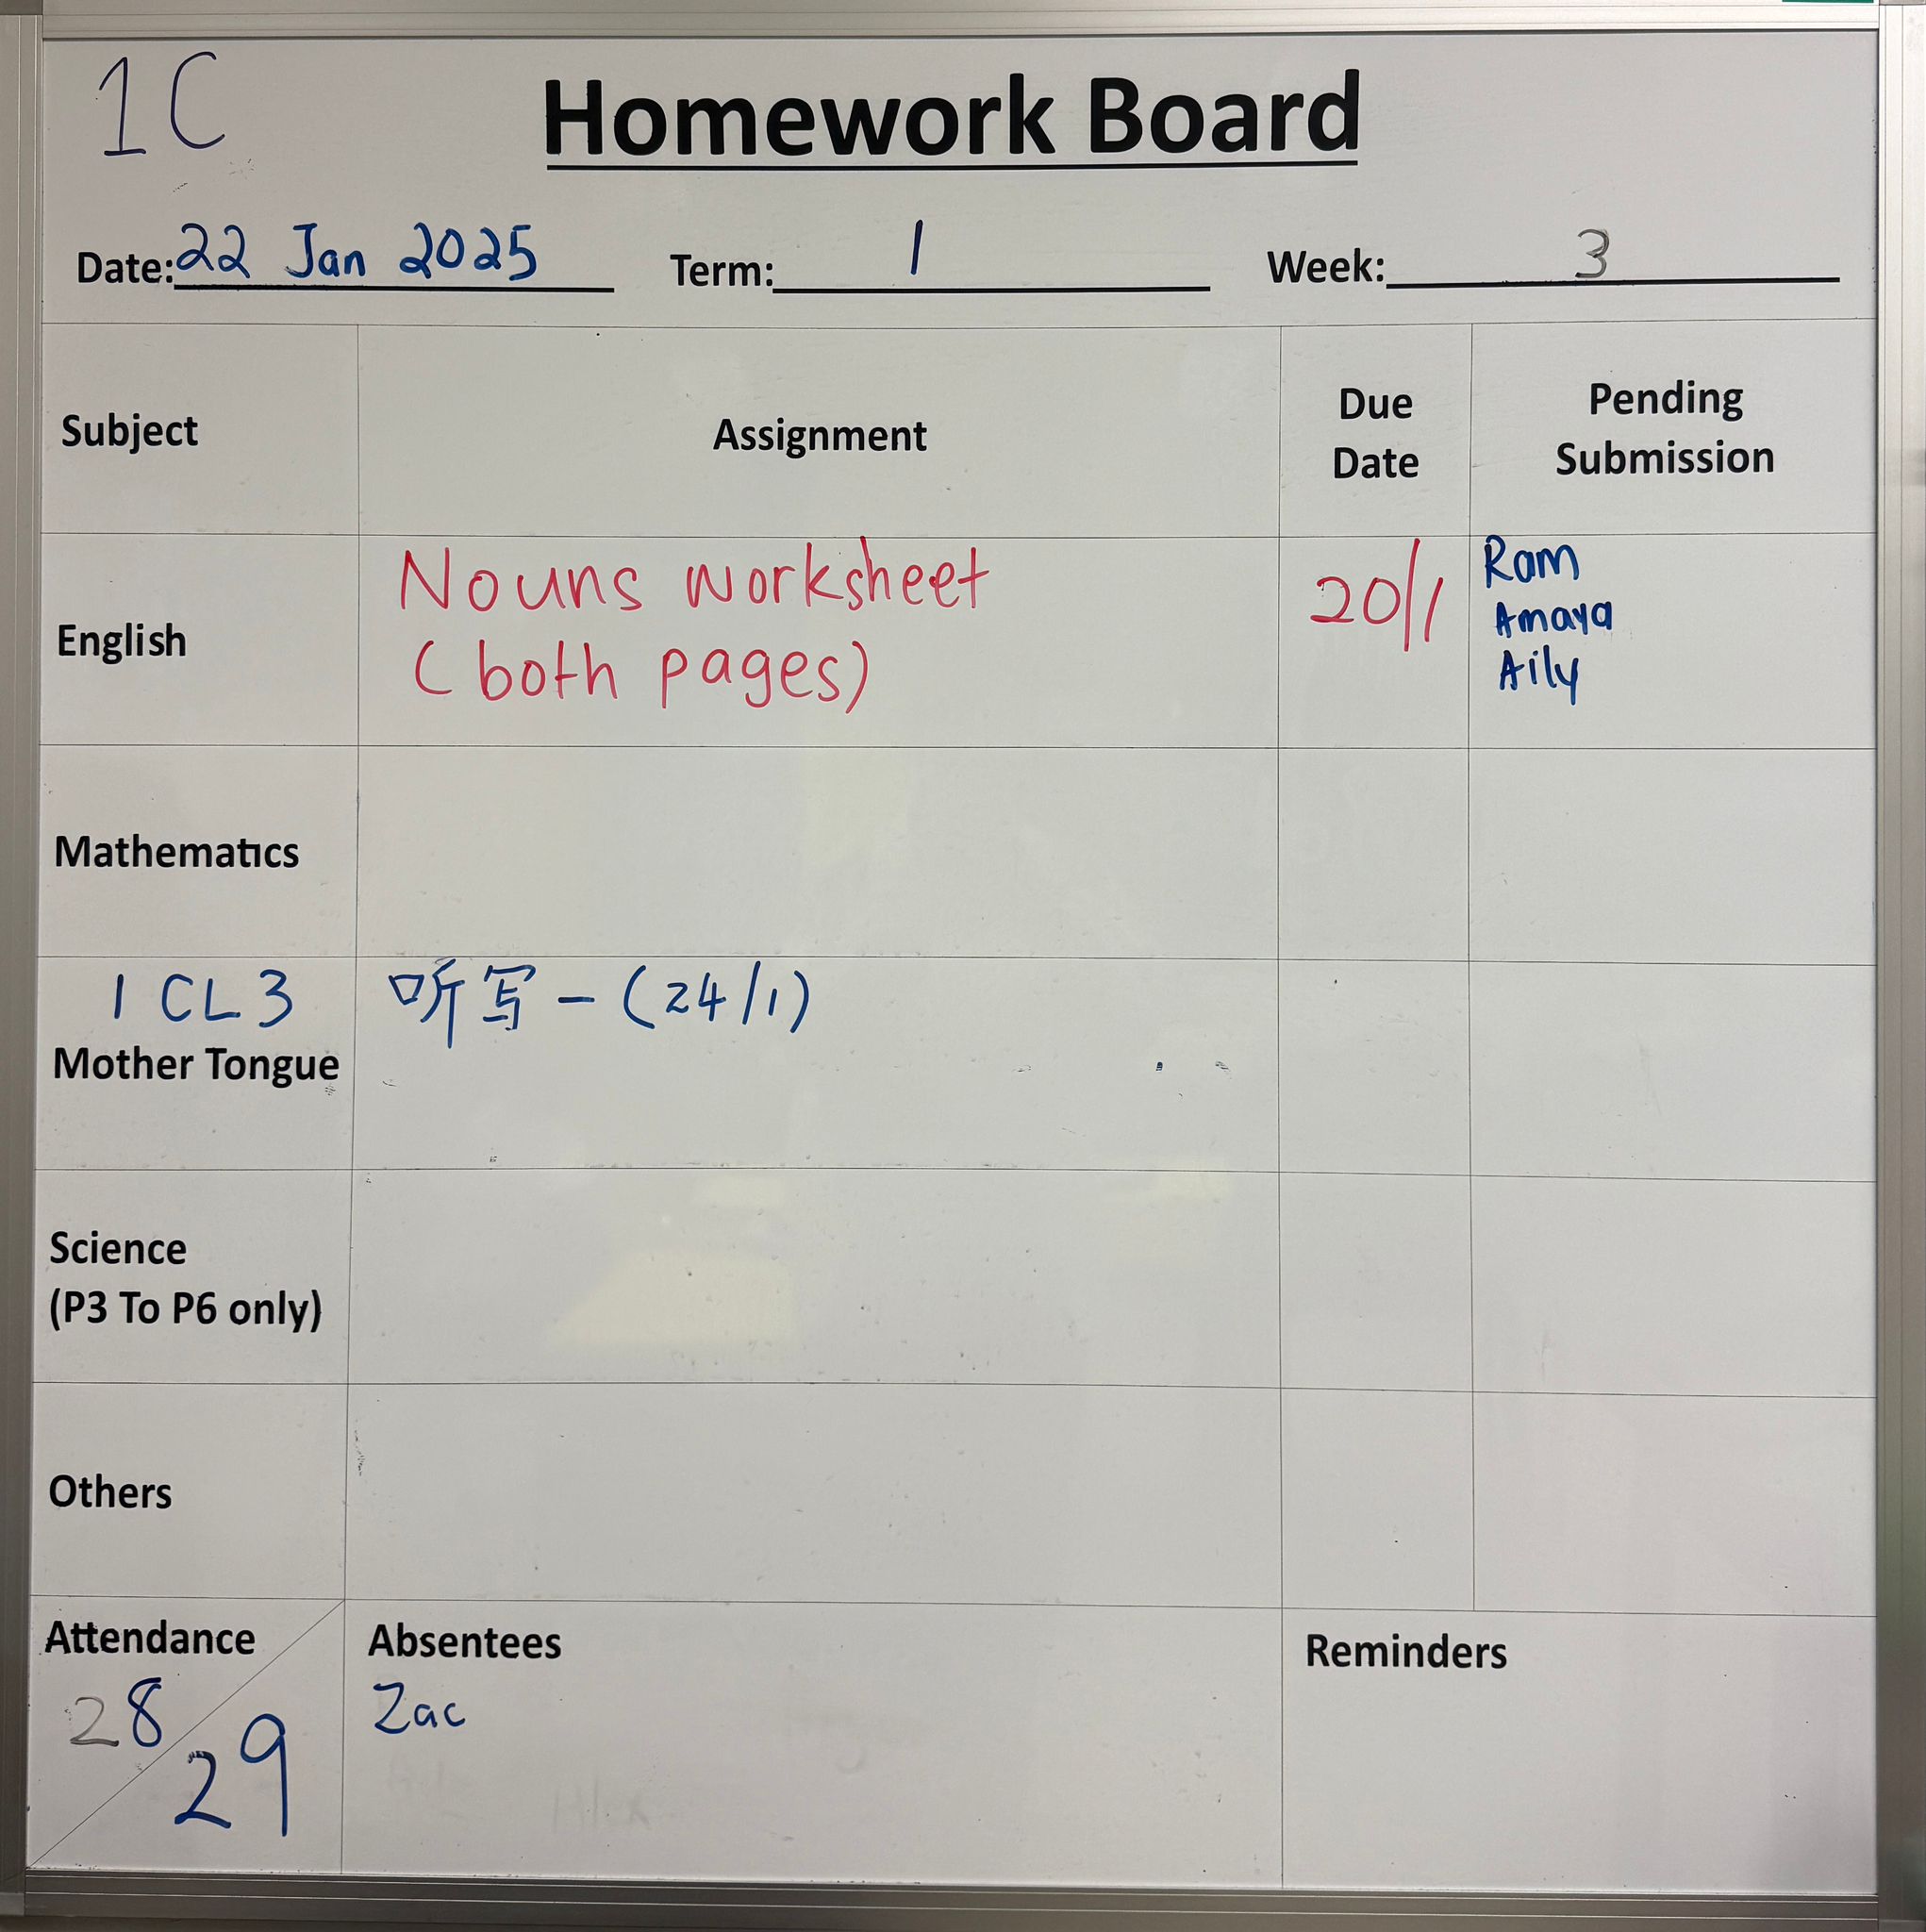 1C
Homework Board
Date: 22 Jan 2025 Term: 1 Week: 3
Subject Assignment Due Date Pending Submission
English
Nouns worksheet
(both pages)
20/1
Ram
Amaya
Aily
Mathematics
1 CL 3
Mother Tongue
听写 - (24/1)
Science
(P3 To P6 only)
Others
Attendance
28
29
Absentees
Zac
Reminders